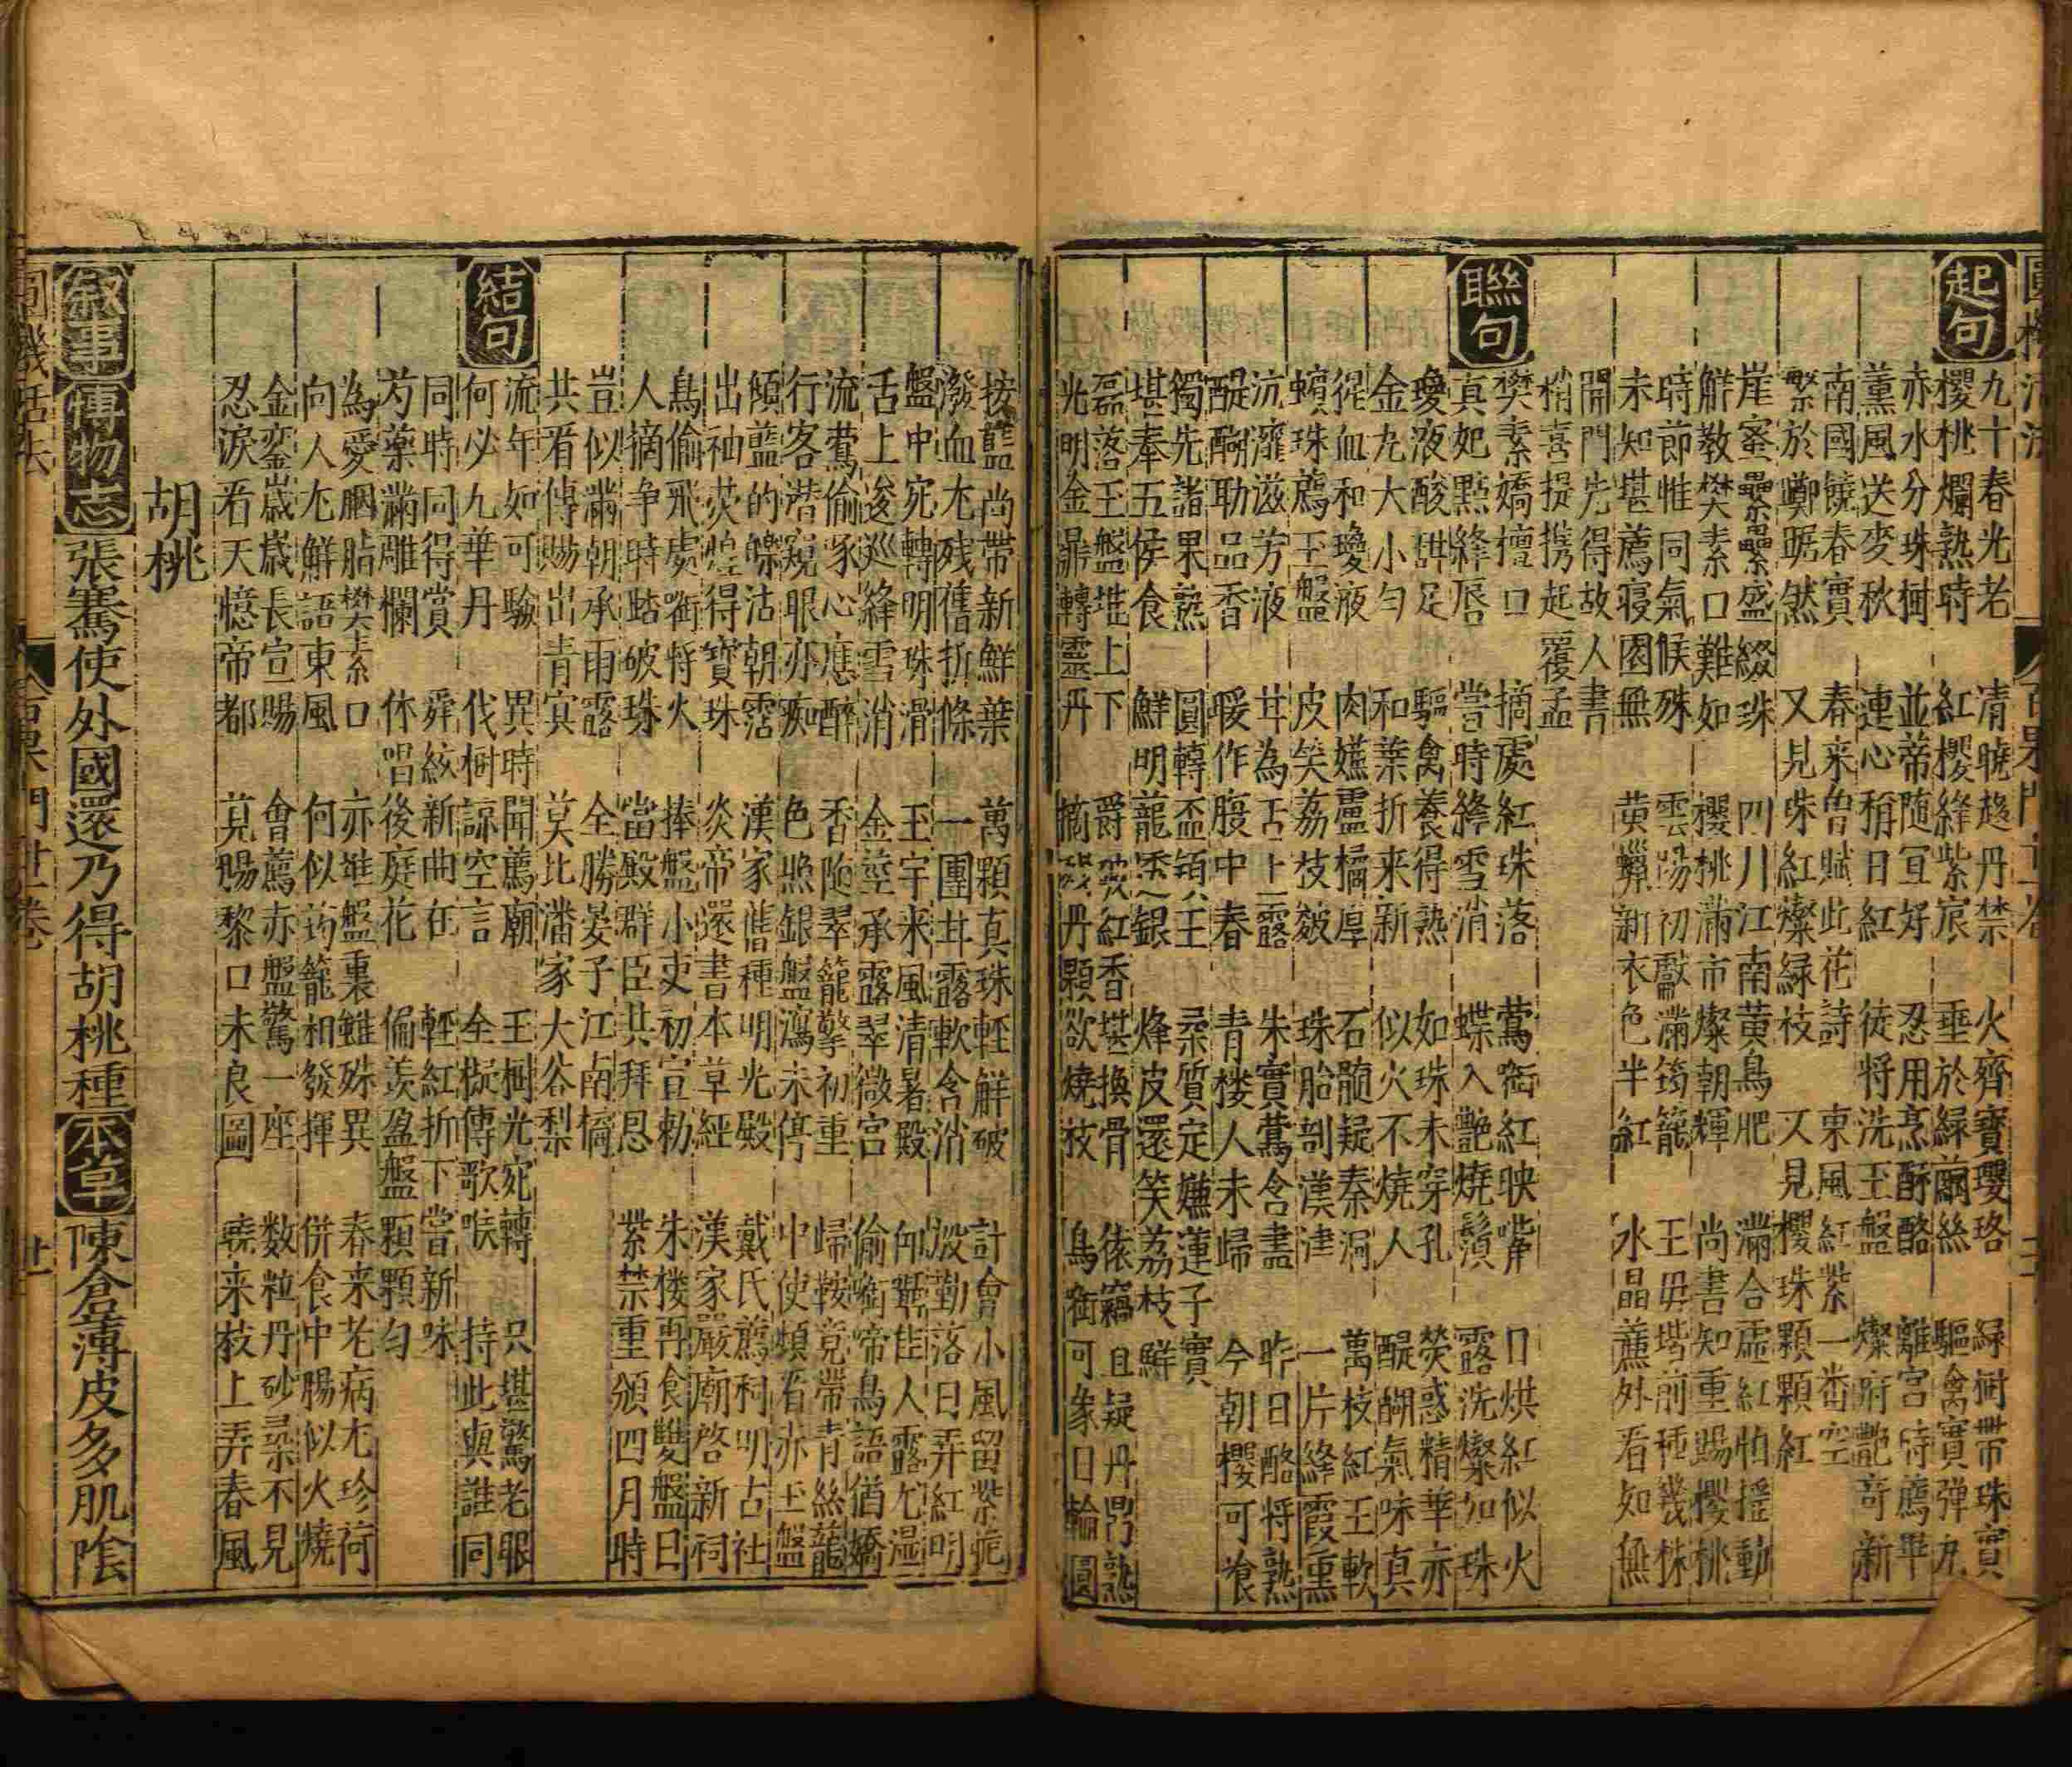 起句
九十春光老 清曉趍丹禁 火齊寶瓔珞 緑樹帶珠實
櫻桃爛熟時 紅櫻絳紫宸 垂於緑繭絲 驅禽實彈丸
赤水分珠樹 並蒂随宜好 忍用烹酥酪 離宮時薦畢
薫風送麥秋 連心稍日紅 從將洗玉盤 燦府艷奇新
南國饒春實 春来魯賦此花詩 東風紅紫一番空
繁於鄭踞然 又見珠紅燦緑枝 又見櫻珠顆顆紅
崖蜜纍纍盛綴珠 四川江南黄鳥肥 滿合虛紅怕揺動
鮮教樊素口難如 櫻桃滿市燦朝輝 尚書知重賜櫻桃
時節惟同氣候殊 雲陽初獻滿筠籠 王母堦前種幾株
未知堪薦寝園無 黄蠟新衣色半紅 水晶簾外看如無
開門先得故人書
梢喜提携起覆盂
聯句
樊素嬌檀口 摘處紅珠落 鶯啣紅映嘴 日烘紅似火
真妃點絳唇 嘗時絳雪消 蝶入艷燒鬚 露洗燦如珠
瓊液酸甜足 驅禽養得熟 如珠未穿孔 熒惑精華亦
金丸大小勻 和葉折来新 似火不燒人 醍醐氣味真
猩血和瓊液 肉嬚盧橘厚 石髓疑秦洞 萬枝紅玉軟
蠙珠薦玉盤 皮笑荔枝皴 珠胎剖漢津 一片絳霞熏
沆瀣滋芳液 甘為舌上露 朱實鶯含盡 昨日酪將熟
醍醐助品香 暖作腹中春 青楼人未歸 今朝櫻可飡
獨先諸果熟 圓轉盃須玉 柔質定嬚蓮子實
堪奉五侯食 鮮明籠透銀 烽皮還笑荔枝鮮
磊落玉盤堆上下 爵啄紅香堪換骨 猿竊且疑丹 熟
光明金鼎轉靈丹 摘殘丹顆欲燒枝 鳥銜可象日輪圓
按藍尚帶新鮮葉 萬顆真珠輕鮮破 計會小風留紫苑
潑血尤残舊折條 一團甘露軟含消 慇勤落日弄紅明
盤中宛轉明珠滑 玉宇来風清暑殿 向 佳人露尤濕
舌上逡巡絳雪消 金莖承露翠微宮 偷啣啼鳥語猶嬌
流鶯偷啄心應醉 香随翠籠擎初重 歸鞍競帶青絲籠
行客潜窺眼亦痴 色照銀盤瀉未停 中使頻看赤玉盤
傾藍的皪沾朝露 漢家舊種明光殿 戴氏薦祠明古社
出袖荧煌得寶珠 炎帝還書本草經 漢家嚴廟啓新祠
鳥偷飛處啣将火 捧盤小吏初宣勅 朱楼再食雙盤日
人摘争時踏破珠 當殿群臣共拜恩 紫禁重頒四月時
豈似滿朝承雨露 全勝晏子江南橘
共看傳賜出青冥 莫比潘家大谷梨
結句
流年如可驗 異時聞薦廟 玉樹光宛轉 只堪驚老眼
何必九華丹 伐樹諒空言 全擬傳歌喉 持此與誰同
同時同得賞 舜絃新曲在 輕紅折下嘗新味
芍藥滿雕欄 休唱後庭花 偏羡盈盤顆顆勻
為愛胭脂樊素口 亦堆盤裏雖殊異 春来老病尤珍荷
向人尤鮮語東風 何似筠籠相發揮 併食中腸似火燒
金鑾歲歲長宣賜 會薦赤盤驚一座 数粒丹砂柔不見
忍淚看天憶帝都 莫賜黎口未良圖 曉来枝上弄春風
胡桃
叙事 博物志 張騫使外國還乃得胡桃種 本草 陳倉薄皮多肌陰
圓機活法 百果門廿一卷 廿一